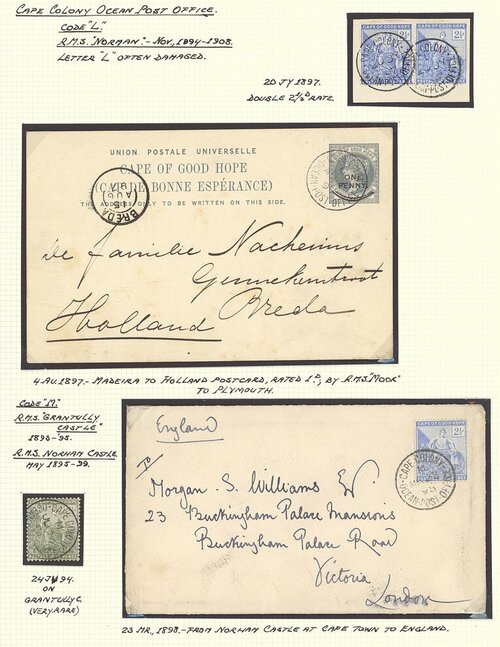 CAPE COLONY OCEAN POST OFFICE.
CODE "L".
R.M.S. "NORMAN" - NOV, 1894-1908.
LETTER "L" OFTEN DAMAGED.
20 JY 1897.
DOUBLE 2½D RATE.
CAPE OF GOOD HOPE
CAPE OF GOOD HOPE
2½
2½
UNION POSTALE UNIVERSELLE
CAPE OF GOOD HOPE
(CAP DE BONNE ESPÉRANCE)
THE ADDRESS ONLY TO BE WRITTEN ON THIS SIDE.
ONE
PENNY
BREDA
AUG
97
De familie Nachenius
Ginnekenstraat
Breda
Holland
4 AU.1897.- MADEIRA TO HOLLAND POSTCARD, RATED 1D, BY R.M.S. "MOOR"
TO PLYMOUTH.
CODE "M".
R.M.S. "GRANTULLY
CASTLE"
1890-95.
R.M.S. NORHAM CASTLE
MAY 1895-99.
24 JY 94.
ON
GRANTULLY C.
(VERY RARE)
England
To
CAPE OF GOOD HOPE
2½
CAPE COLONY
OCEAN-POST-OFF
Morgan S. Williams
23 Buckingham Palace Mansions
Buckingham Palace Road
Victoria
London
23 MR, 1898.- FROM NORHAM CASTLE AT CAPE TOWN TO ENGLAND.